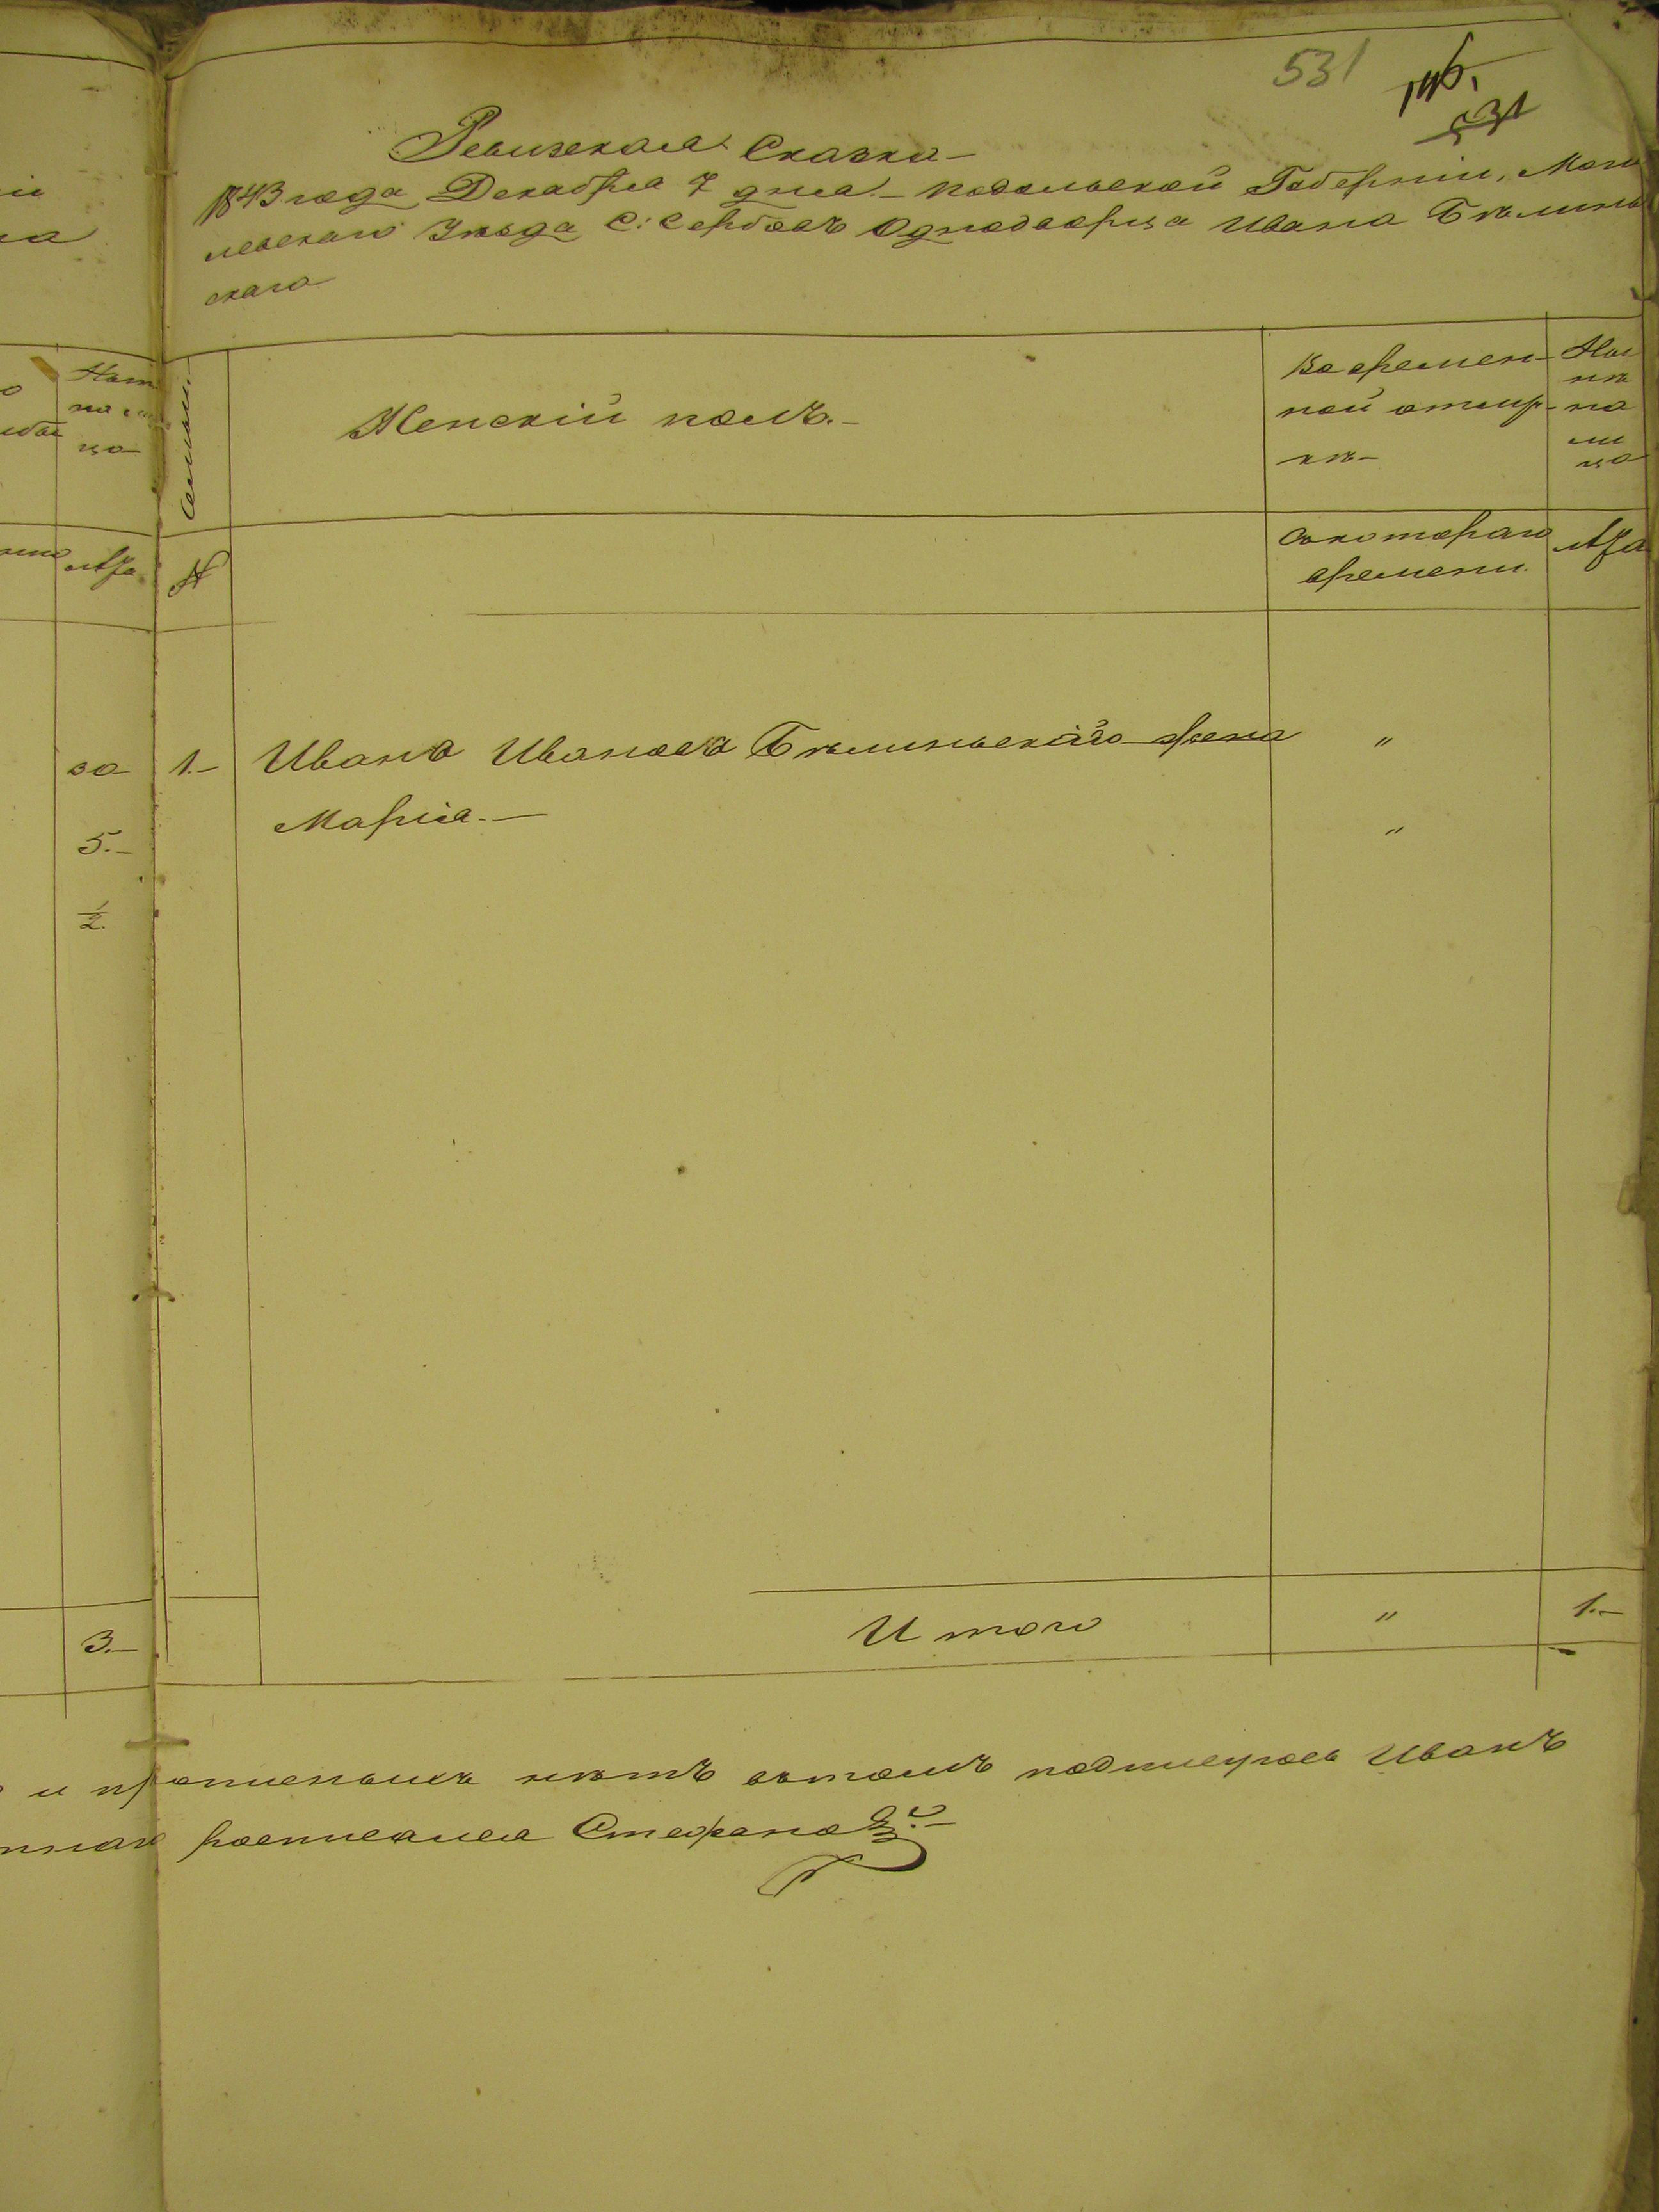 531 146.
531
Ревизская Сказка
1843 года Декабря 7 дня. Подольской Губерніи, Моги
левскаго Уѣзда С: Сербовъ Однодворца Ивана Бѣлинь
скаго
Семьи. Женскій полъ. Во времен- Ны
ной отлуч- нѣ
кѣ на
ли
цо
№ Съкотораго Лѣта
времени.
Лѣта
на
цо
1. Ивана Иванова Бѣлиньскаго жена "
Марія. "
5.
1/2.
Итого " 1.
3.
и прописныхъ нѣтъ вътомъ подписуюсь Иванъ
росписался Стефано